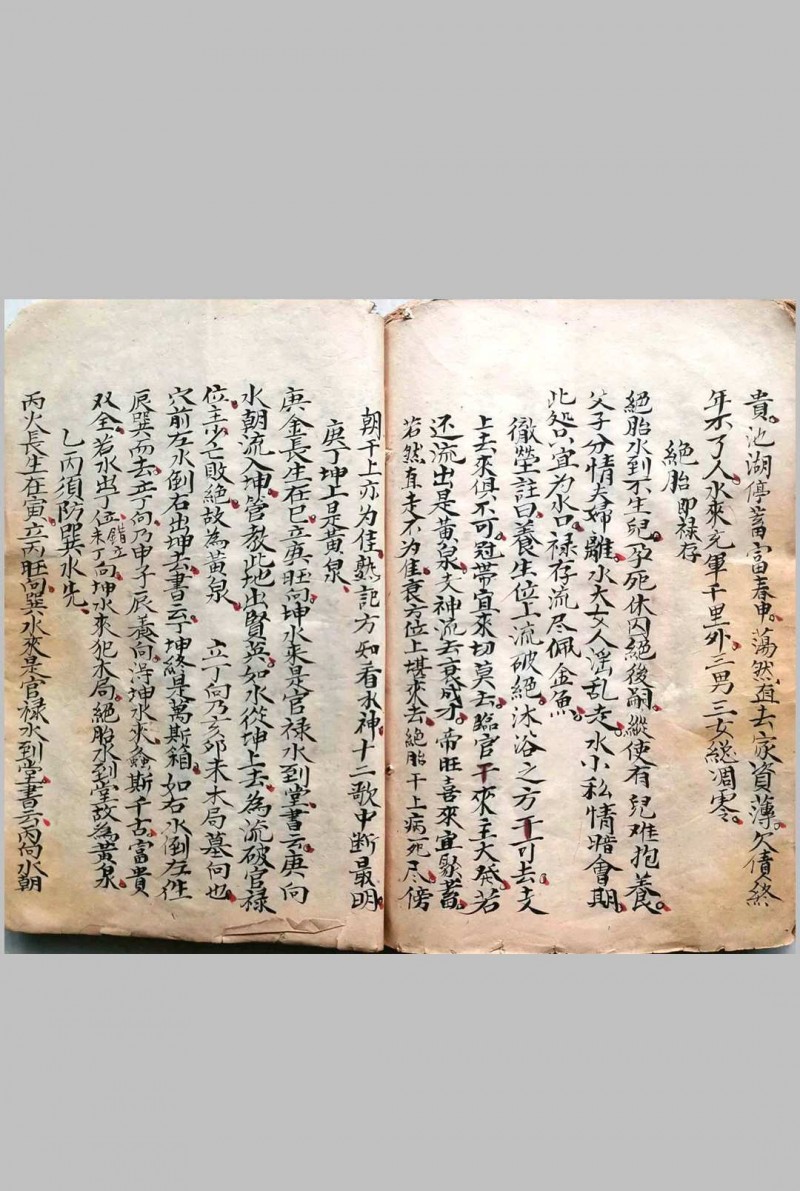 貴。池湖停蓄富春申。蕩然直去家資薄。欠債終
年不了人。水來充軍千里外。三男三女總凋零。
絕胎 即禄存
絕胎水到不生兒。孕死休囚絕後嗣。縱使有兒难抱養。
父子分情夫婦離。水大女人淫乱走。水小私情暗會期。
此処只宜为水口。禄存流尽佩金魚。
徹瑩註曰養生位上流破絕。沐浴之方干可去支
上去來俱不可。冠帶宜來切莫去。臨官干來主大發。若
还流出是黄泉。支神流去衰成才。帝旺喜來宜聚蓄。
若然直走不为佳。衰方位上堪來去。絕胎干上病死尽。傍
朝干上亦为佳。熟記方知看水神。十二歌中断最明。
庚丁坤上是黄泉、
庚金長生在巳。立庚旺向。坤水來是官禄水到堂。書云庚向
水朝流入坤。管教此地出賢英。如水從坤上去。為流破官禄
位。主少亡敗絕。故為黄泉。 立丁向。乃亥卯未木局墓向也。
穴前左水倒右出坤去。書云丁坤終是萬斯箱。如右水倒左從
辰巽而去。立丁向乃申子辰養向。得坤水來。螽斯千古。富貴
双全。若水出丁位。錯立未丁向。坤水來犯本局。絕胎水到堂。故為黄泉。
乙丙須防巽水先、
丙火長生在寅。立丙旺向。巽水來是官禄水到堂。書云丙向水朝